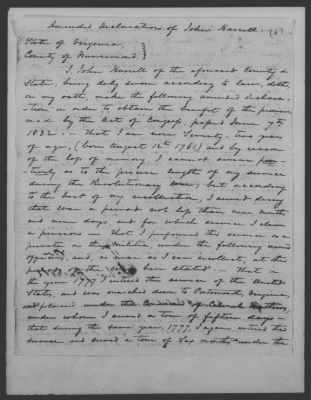 Amended Declaration of John Harrell (3)
State of Virginia,
County of Nansemond. }
I, John Harrell of the aforesaid County &
State, being duly sworn according to law, doth,
on my oath, make the following amended declara-
tion in order to obtain the benefit of the provision
made by the Act of Congress, passed June 7th
1832. – That I am now Seventy-two years
of age, (born August 12th 1761) and by reason
of the loss of memory, I cannot swear posi-
tively as to the precise length of my service
during the Revolutionary war; but according
to the best of my recollection, I served during
that war a period not less than nine months
and nine days, and for which service I claim
a pension – That I performed this service as a
private in the Militia, under the following named
officers, and, as near as I can recollect, at the
been stated – That in
the year 1777 I entered the service of the United
States, and was marched down to Portsmouth, Virginia,
and placed under the Command of
under whom I served a tour of fifteen days
that during the same year, 1777, I again entered the
service, and served a tour of Six months under the